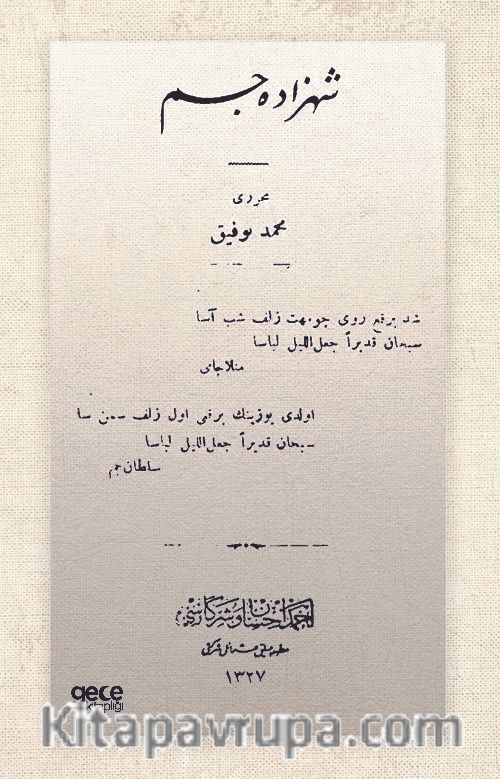 شهزاده جم
محرری
محمد توفیق
شد برقع روی چو مهت زلف شب آسا
سبحان قدیراً جعل اللیل لباسا
منلا جامی
اولدی یوزینك برقعی اول زلف سمن سا
سبحان قدیراً جعل اللیل لباسا
سلطان جم
احمد احسان و شرکاسی
مطبعه جیلق عثمانلی شرکتی
۱۳۲۷
gece
kitaplığı
kitapavrupa.com